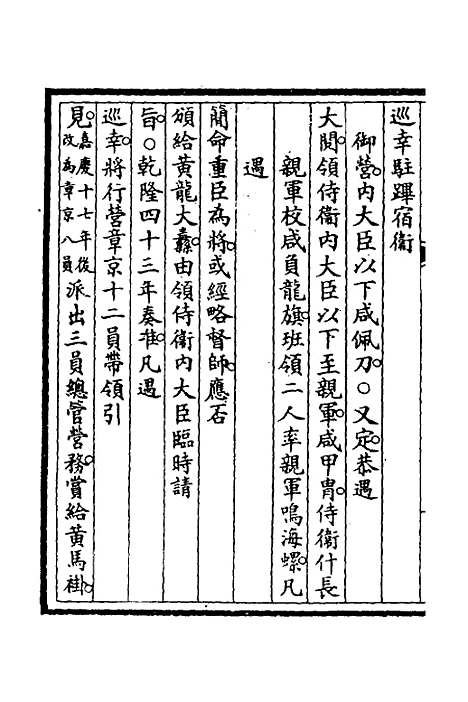 巡幸駐蹕宿衛
御營内大臣以下咸佩刀。○又定。恭遇
大閱。領侍衛内大臣以下至親軍。咸甲冑。侍衛什長
親軍校咸負龍旗。班領二人率親軍鳴海螺。凡
遇
簡命重臣為將。或經略督師。應否
頒給黃龍大纛。由領侍衛内大臣臨時請
旨。○乾隆四十三年奏准。凡遇
巡幸。將行營章京十二員帶領引
見。嘉慶十七年後改為章京八員派出三員總管營務。賞給黃馬褂。